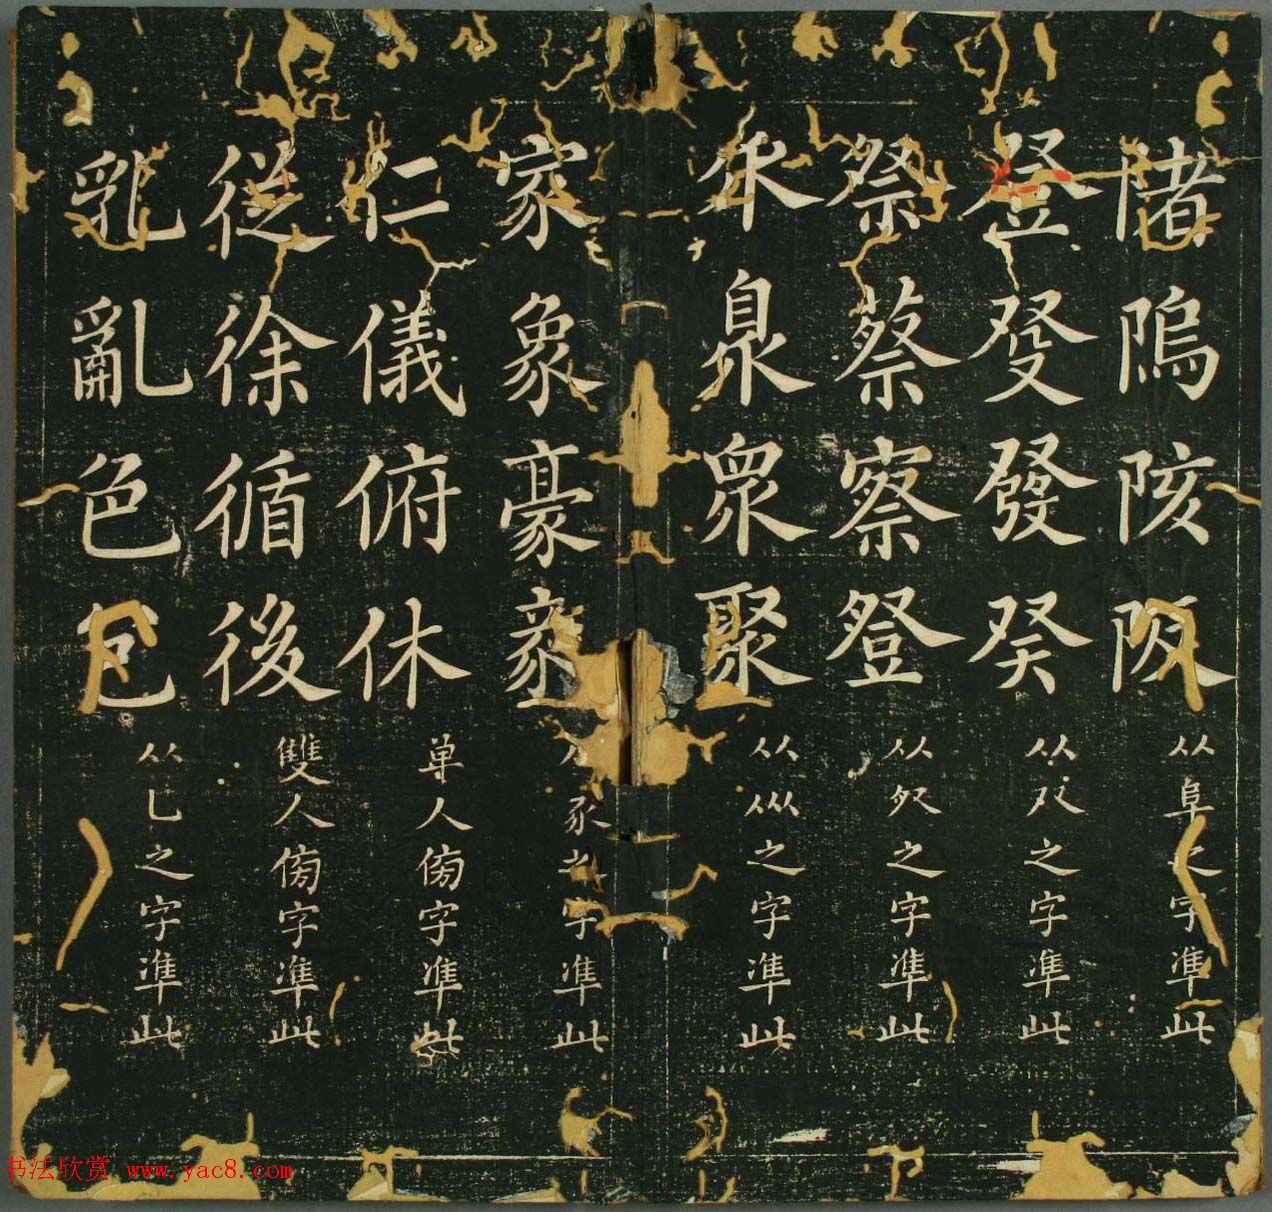 陼隖陔阪从阜之字準此
登發發癸从癶之字準此
祭蔡察登从𣦼之字準此
乑臮眾聚从㐺之字準此
家象豪豙豕之字準此
仁儀俯休单人傍字準此
従徐循後雙人傍字準此
乳亂色包从乚之字準此
书法欣赏 www.yac8.com